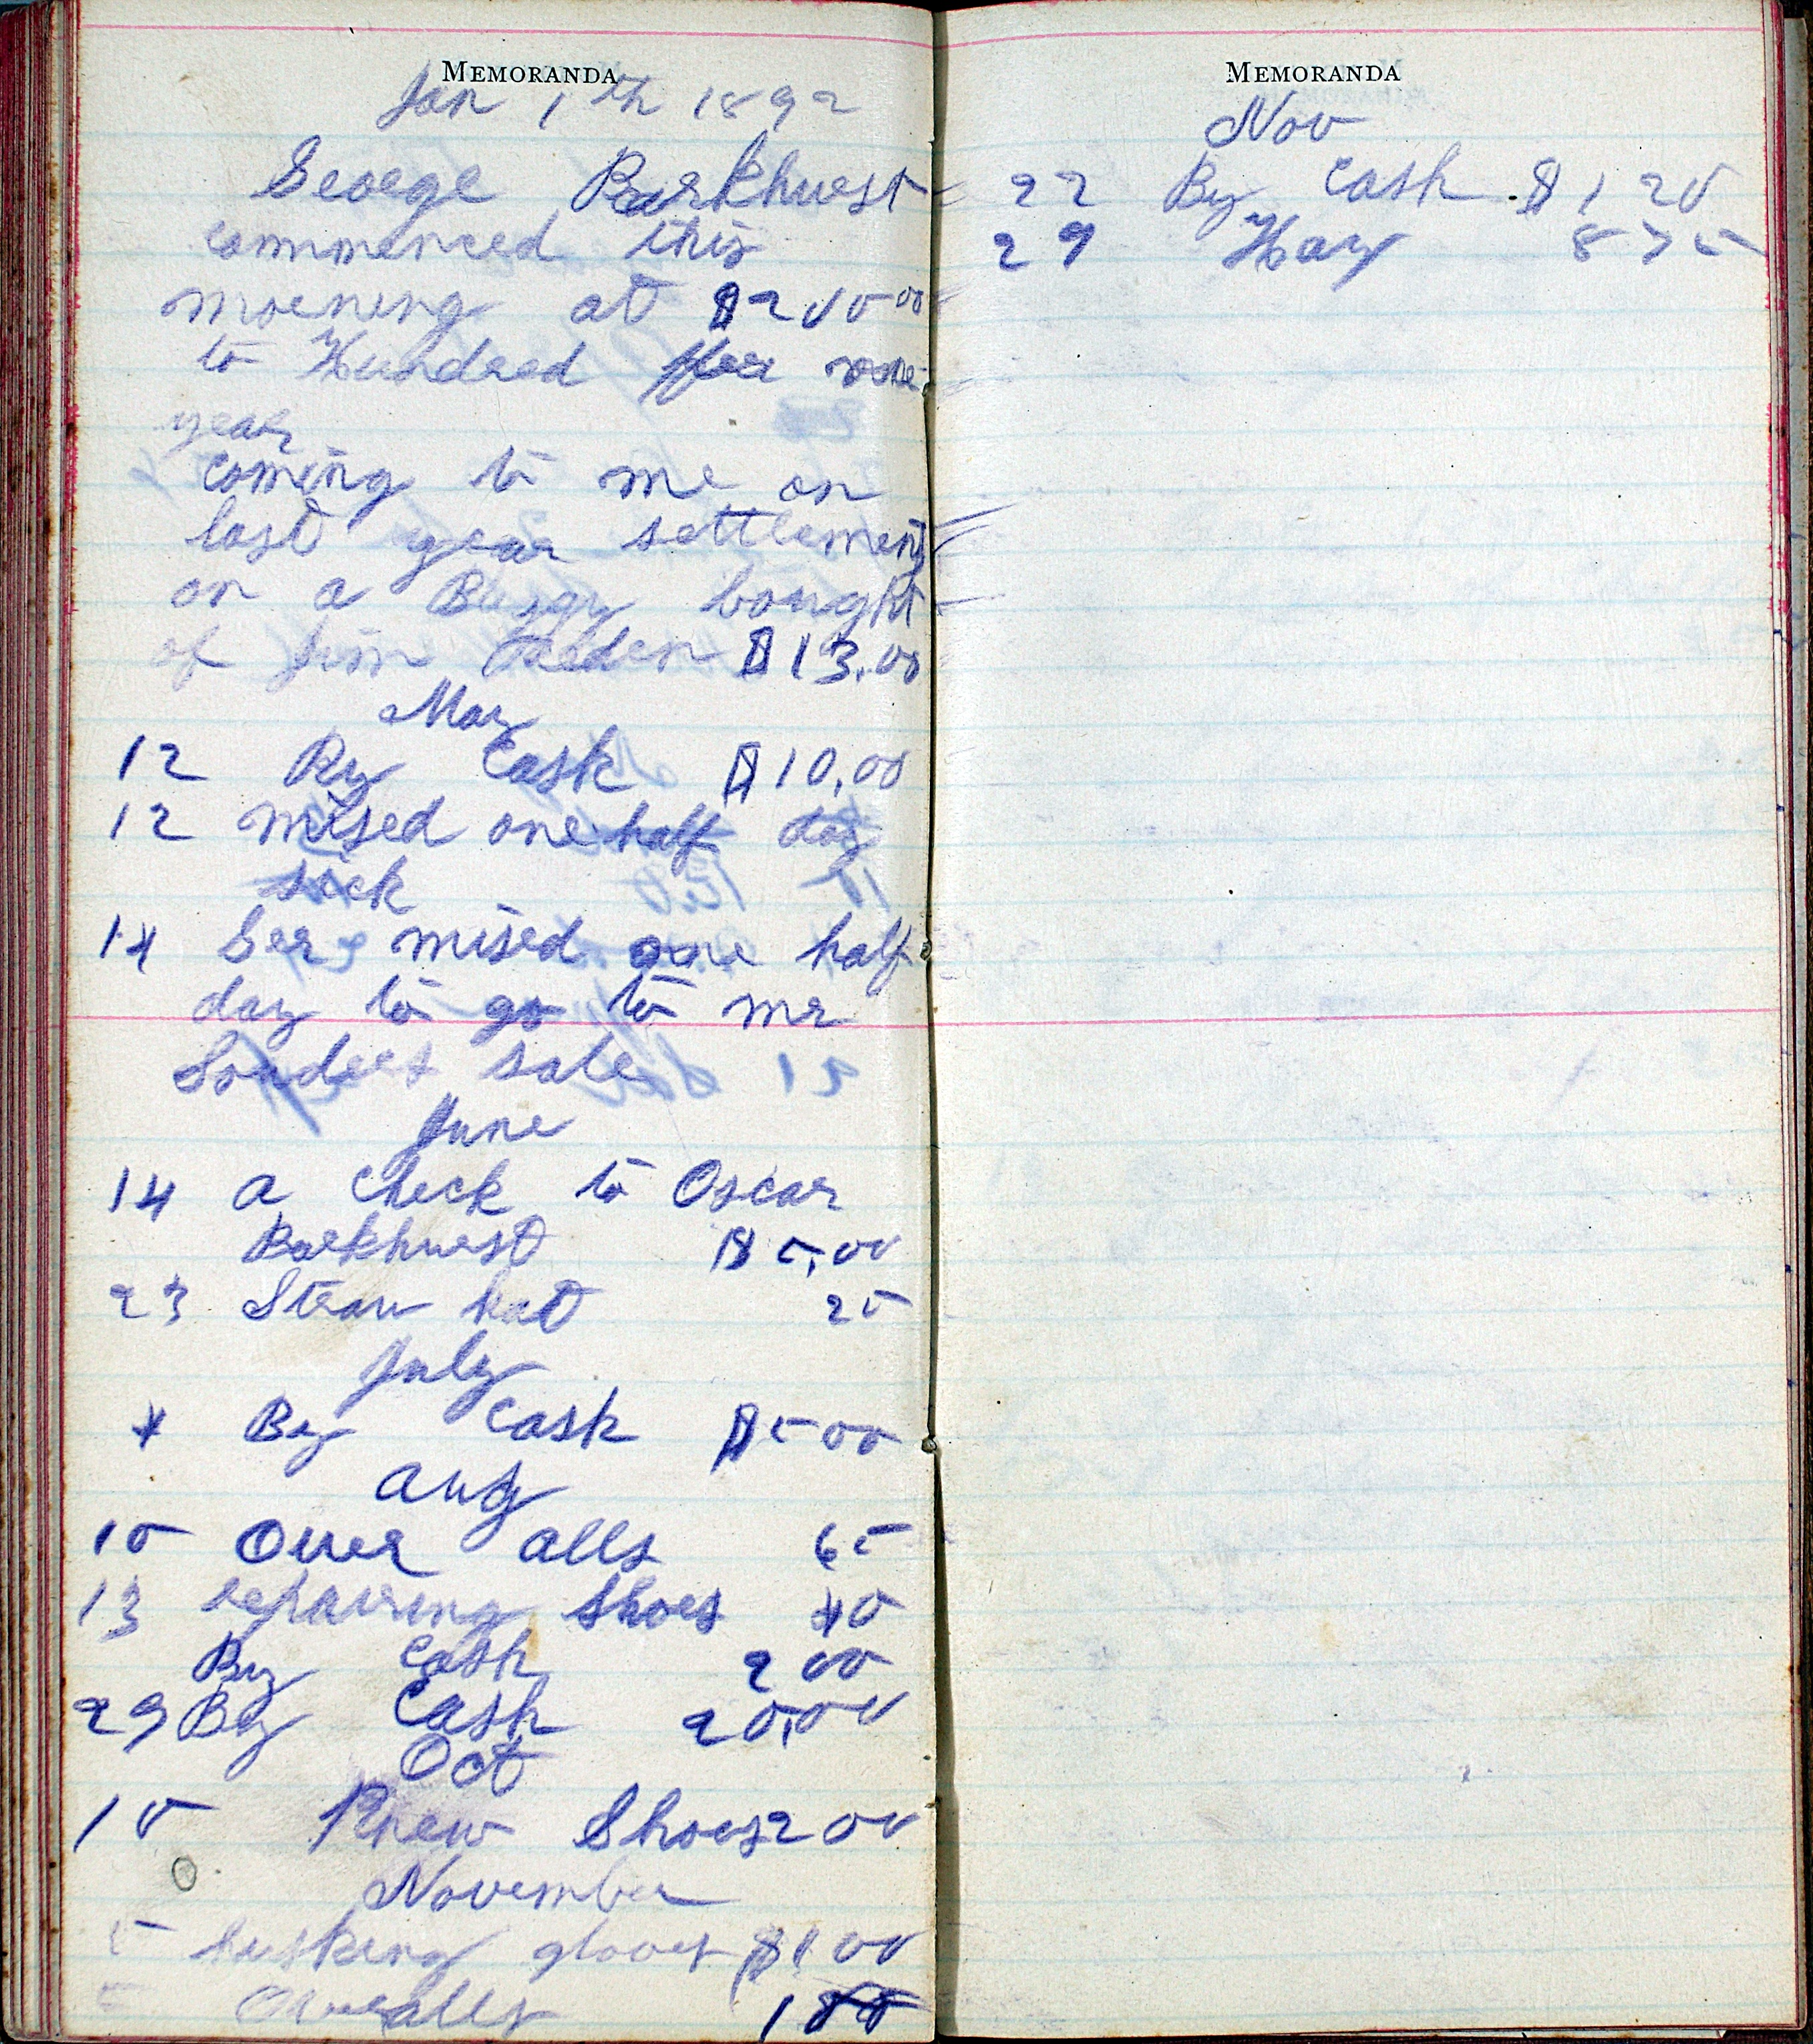 MEMORANDA
Jan 1th 1892
George Parkhurst
commenced this
morning at $200 00
to Hundred for one
year
coming to me on
last year settlement
on a Buggy bought
of Jim $13.00
May
12 By Cash $10.00
12 mised one half day
sick
14 Ger mised one half
day to go to mr
sale
June
14 a check to Oscar
Parkhurst $5.00
23 Straw hat 25
July
4 By Cash $5 00
Aug
10 Over alls 65
13 repairing Shoes 40
By Cash 2 00
29 By Cash 20.00
Oct
10 Pr new Shoes 2 00
November
5 husking gloves $1 00
Overalls 1 00
MEMORANDA
Nov
22 By Cash $1 20
29 Hay 8 75